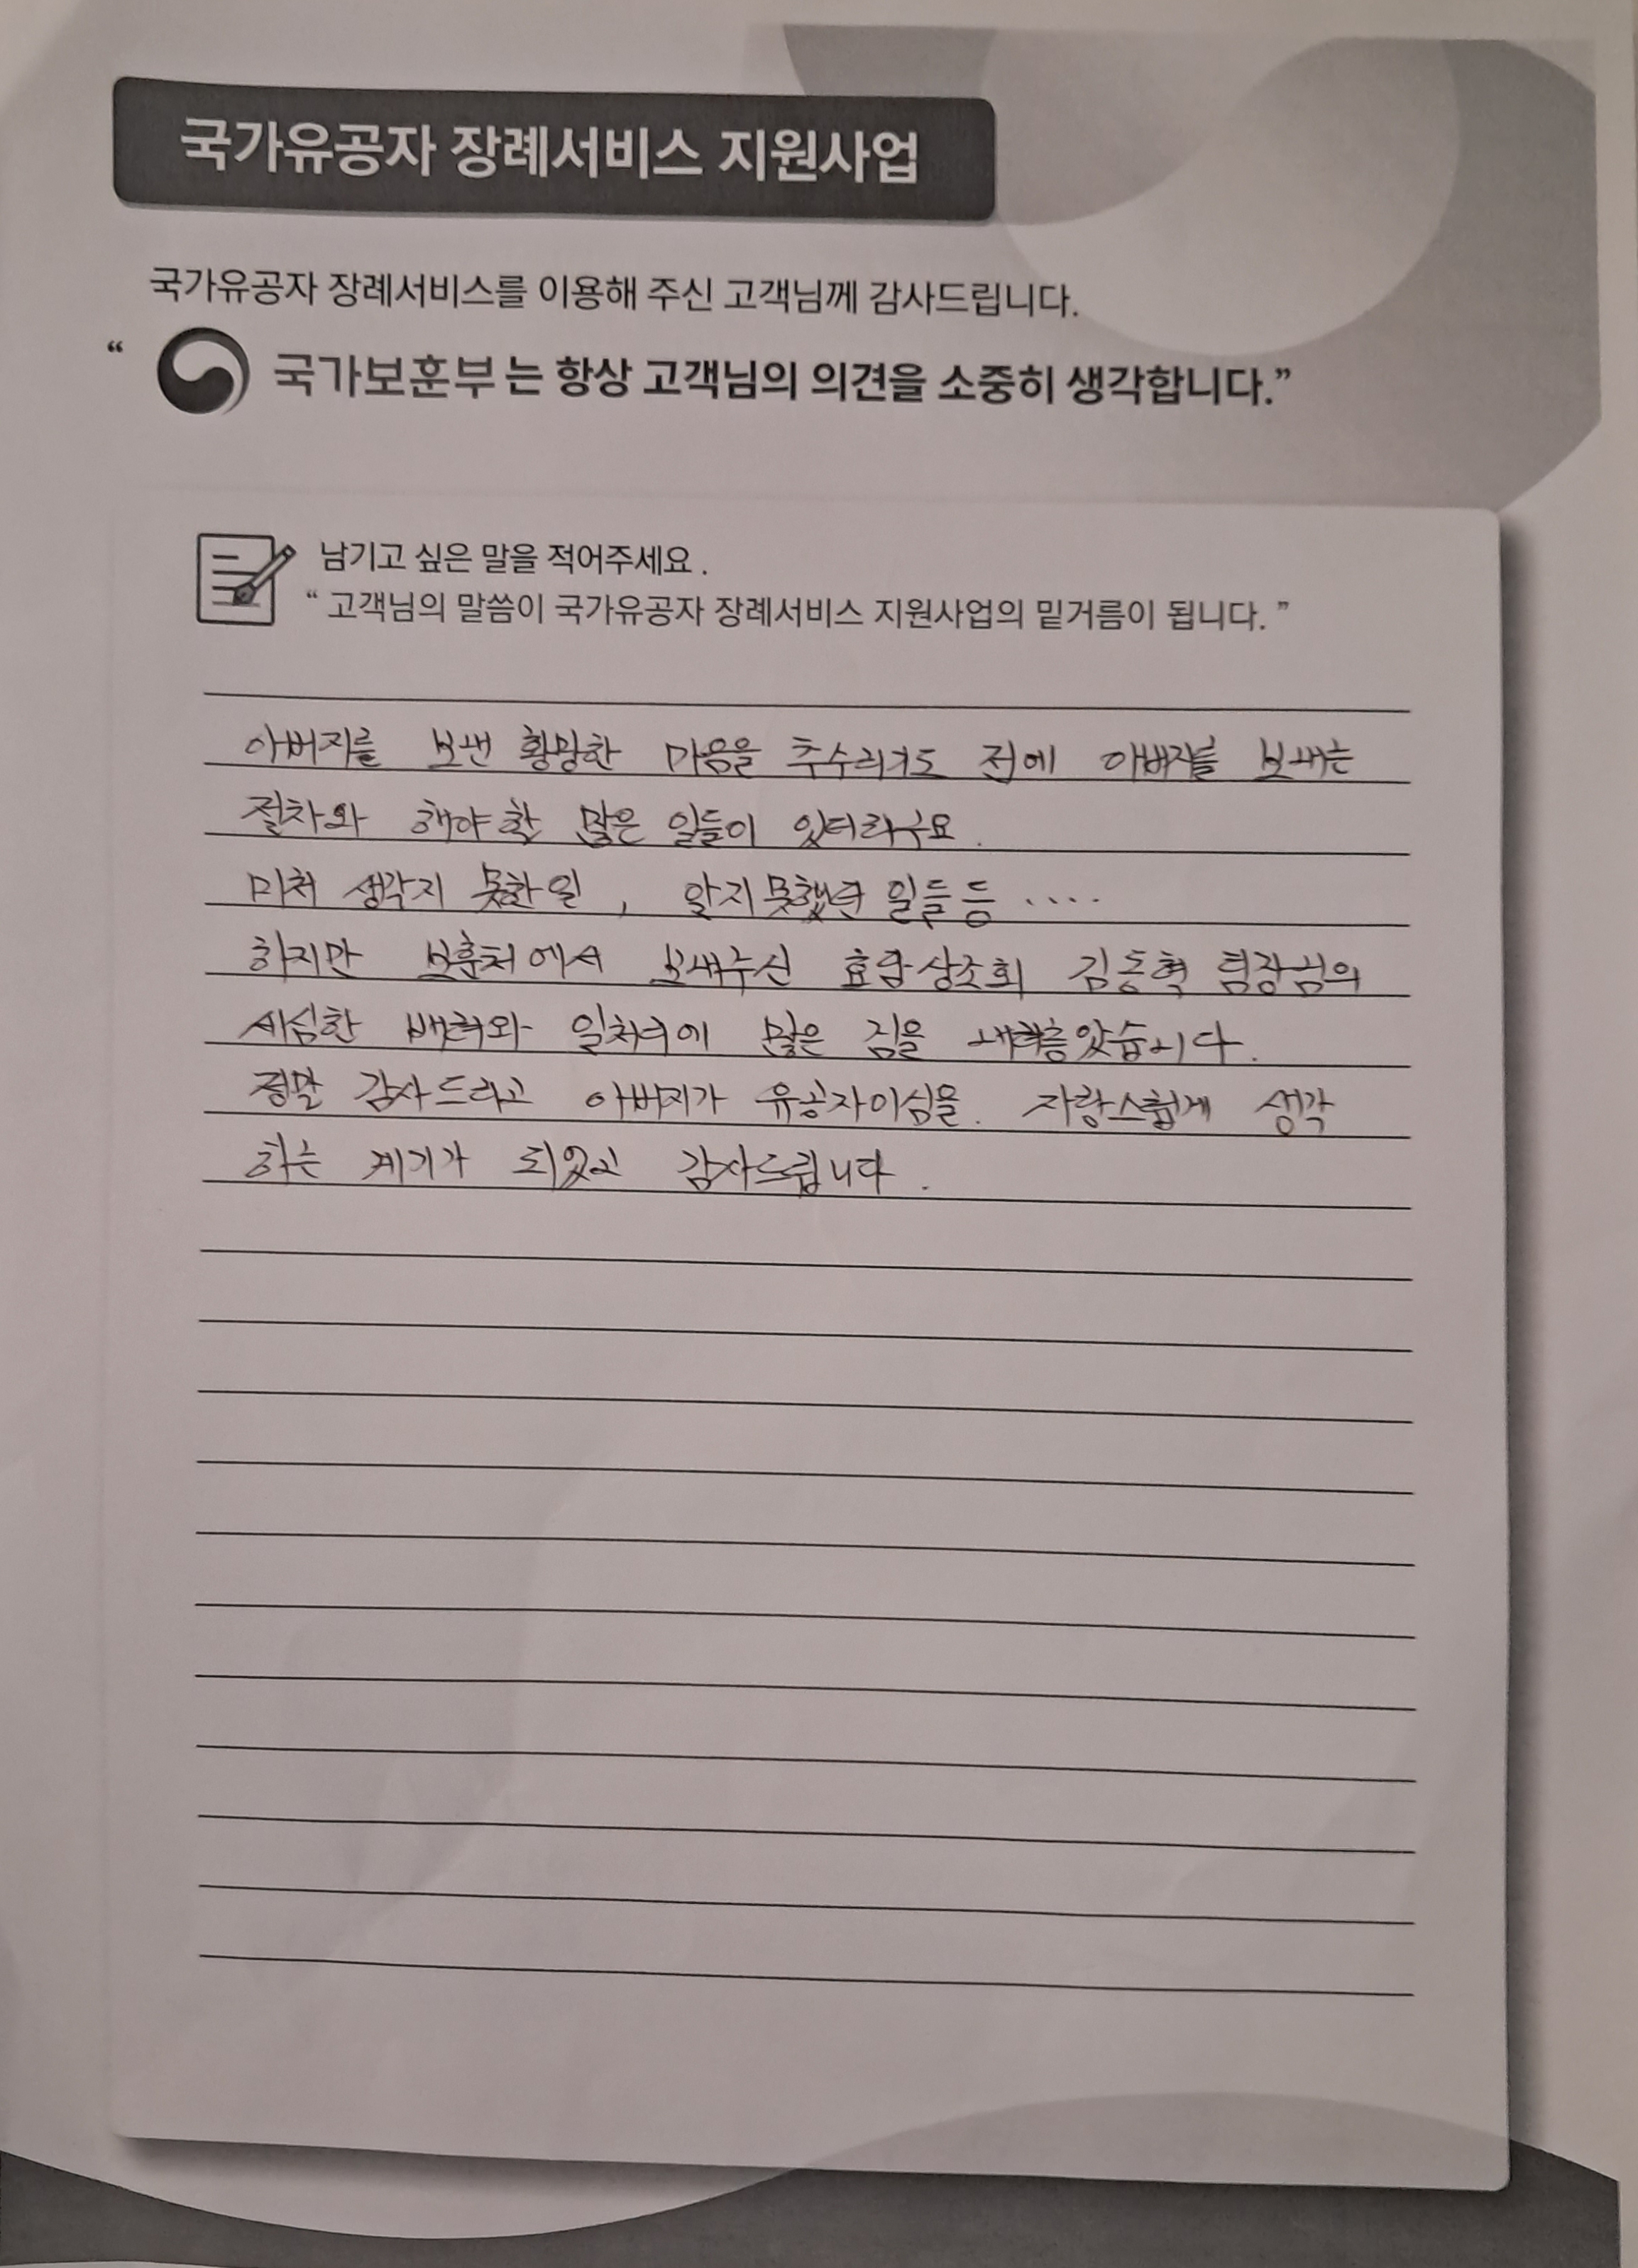 국가유공자 장례서비스 지원사업
국가유공자 장례서비스를 이용해 주신 고객님께 감사드립니다.
“ 국가보훈부는 항상 고객님의 의견을 소중히 생각합니다.”
남기고 싶은 말을 적어주세요.
“ 고객님의 말씀이 국가유공자 장례서비스 지원사업의 밑거름이 됩니다. ”
아버지를 보낸 황망한 마음을 추수리기도 전에 아버지를 보내는
절차와 해야할 많은 일들이 있더라구요.
미처 생각지 못한일, 알지못했던 일들등 ····
하지만 보훈처에서 보내주신 효담상조회 김동혁 팀장님의
세심한 배려와 일처리에 많은 짐을
정말 감사드리고 아버지가 유공자이심을. 자랑스럽게 생각
하는 계기가 되었고 감사드립니다.